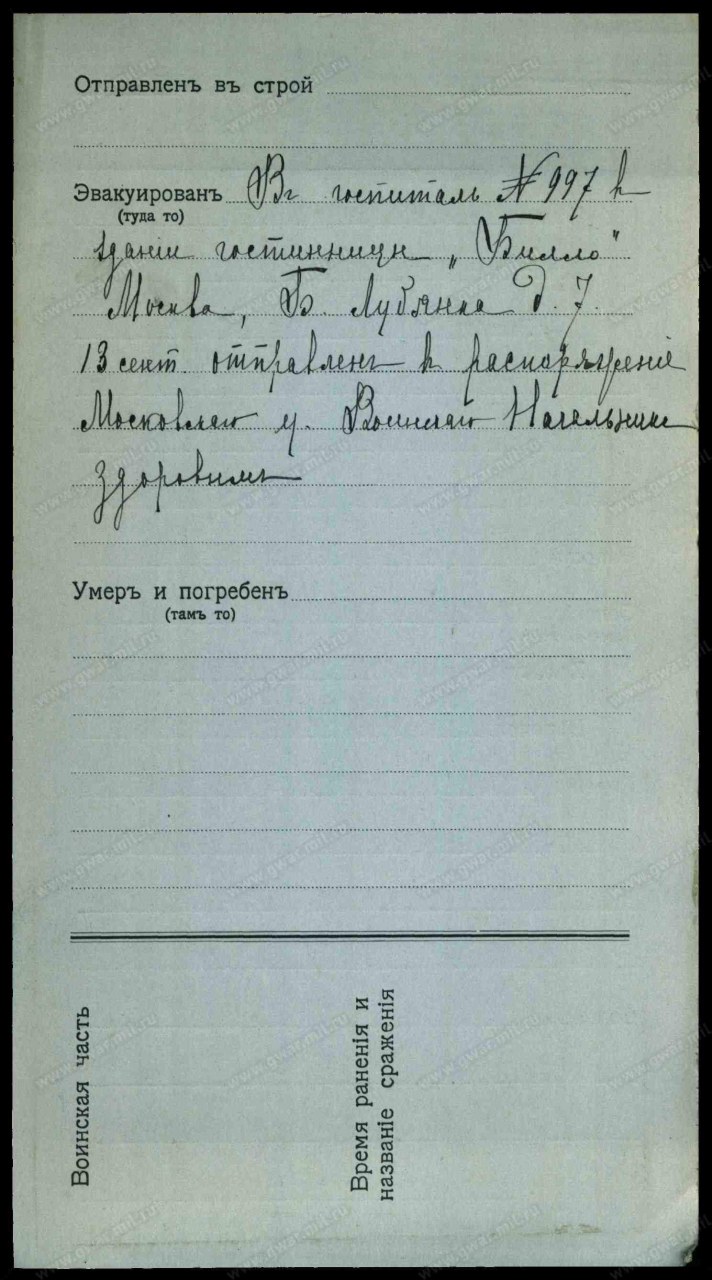 Отправленъ въ строй
Эвакуированъ Въ госпиталь № 997 въ
(туда то)
зданіи гостинницы „Билло"
Москва, Б. Лубянка д. 7.
13 сент. отправленъ въ распоряженіе
Московскаго у. Воинскаго Начальника
здоровымъ
Умеръ и погребенъ
(тамъ то)
Воинская часть
Время раненія и
названіе сраженія
www.gwar.mil.ru